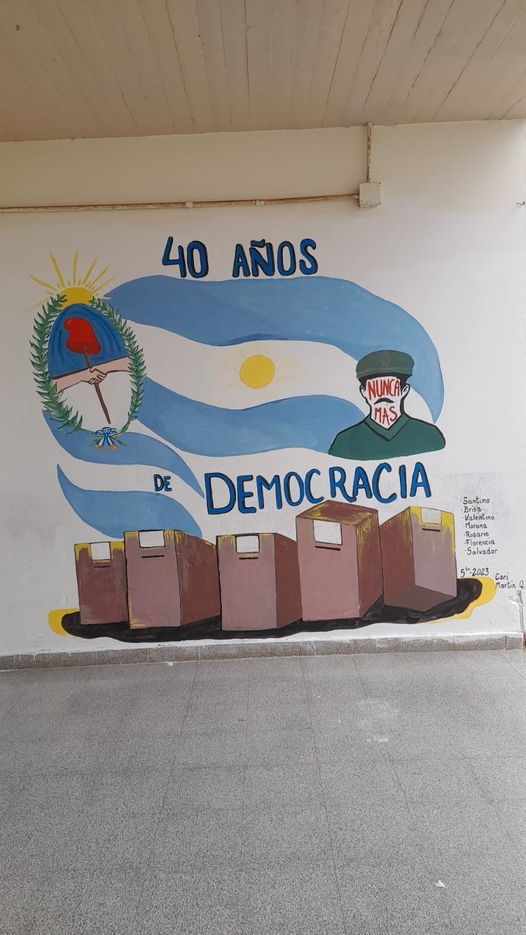 40 AÑOS
NUNCA
MÁS
DE DEMOCRACIA
· Santino
· Brisa
· Valentina
· Morena
· Rosario
· Florencia
· Salvador
5to 2023
Cari
Martin Q